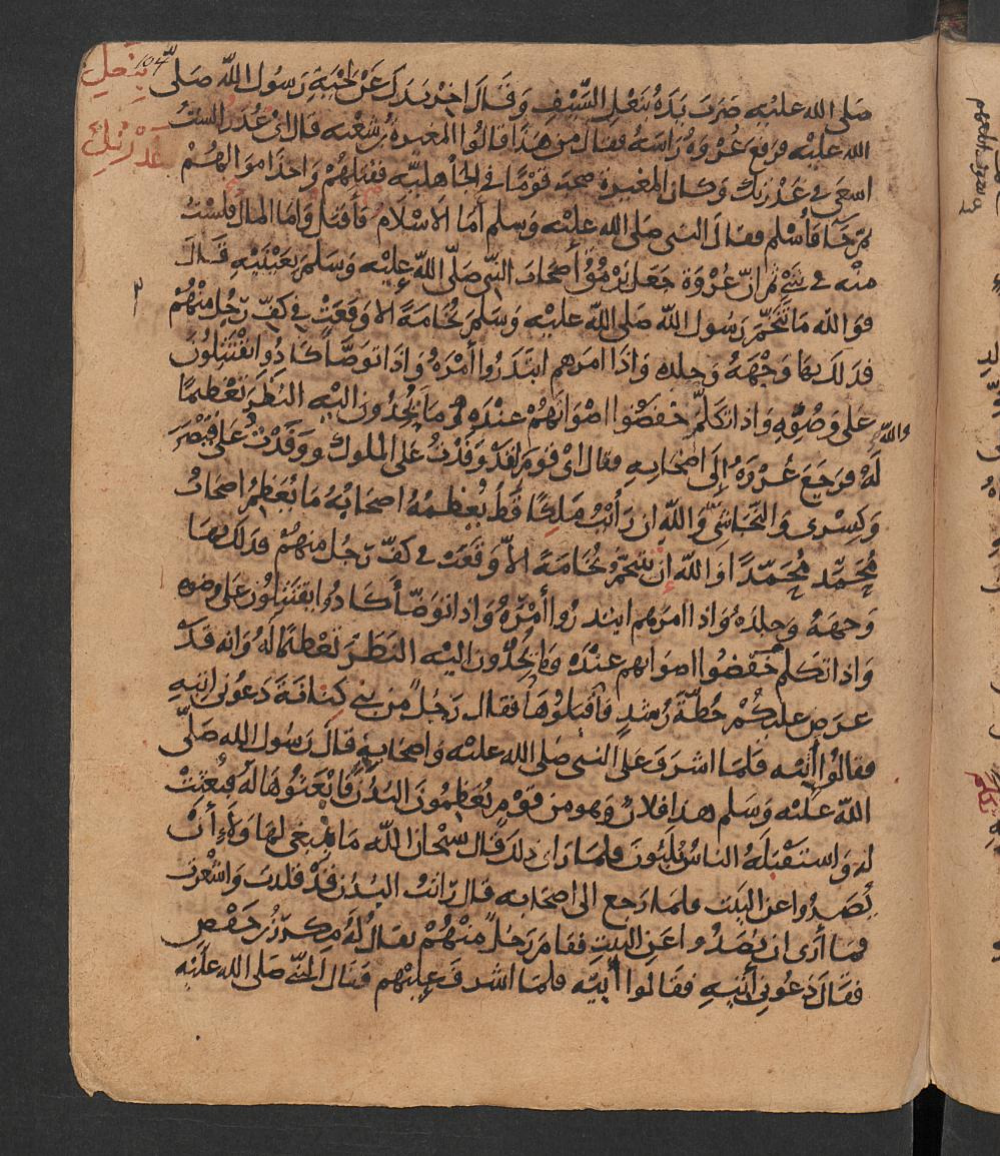 بنعل
غدرتك
104
صلى الله عليه ضرب يده بنعل السيف وقال اخر يدك عن لحية رسول الله صلى
الله عليه فرفع عروة راسه فقال من هذا قالوا المغيرة بن شعبة قال اى غدر الست
اسعى فى غدرتك وكان المغيرة صحب قوما فى الجاهلية فقتلهم واخذ اموالهم
ثم جا فأسلم فقال النبى صلى الله عليه وسلم أما الاسلام فأقبل وأما المال فلست
منه فى شئ ثم ان عروة جعل يرمق أصحاب النبى صلى الله عليه وسلم بعينيه قال
فو الله ما تنخم رسول الله صلى الله عليه وسلم نخامة الا وقعت فى كف رجل منهم
فدلك بها وجهه وجلده واذا امرهم ابتدروا أمره واذا توضأ كادوا يقتتلون
على وضوءه واذا تكلم خفضوا اصواتهم عنده وما يحدون اليه النظر تعظيما
له فرجع عروة إلى اصحابه فقال اى قوم والله لقد وفدت على الملوك ووفدت على قيصر
وكسرى والنجاشى والله ان رأيت ملكا قط يعظمه اصحابه ما يعظم اصحاب
محمد محمدا والله إن تنخم نخامة الا وقعت فى كف رجل منهم فدلك بها
وجهه وجلده واذا امرهم ابتدروا أمره واذا توضأ كادوا يقتتلون على وضوه
واذا تكلم خفضوا اصواتهم عنده وما يحدون اليه النظر تعظيما له وانه قد
عرض عليكم خطة رشد فاقبلوها فقال رجل من بنى كنانة دعونى اتيه
فقالوا أتيه فلما اشرف على النبى صلى الله عليه واصحابه قال رسول الله صلى
الله عليه وسلم هذا فلان وهو من قوم يعظمون البدن فابعثوها له فبعثت
له واستقبله الناس يلبون فلما راى ذلك قال سبحان الله ما ينبغى لهاولاء أن
يصدوا عن البيت فلما رجع الى اصحابه قال رأيت البدن قد قلدت واشعرت
فما أرى ان يصدوا عن البيت فقام رجل منهم يقال له مكرز بن حفص
فقال دعونى أتيه فقالوا أتيه فلما اشرف عليهم قال النبى صلى الله عليه